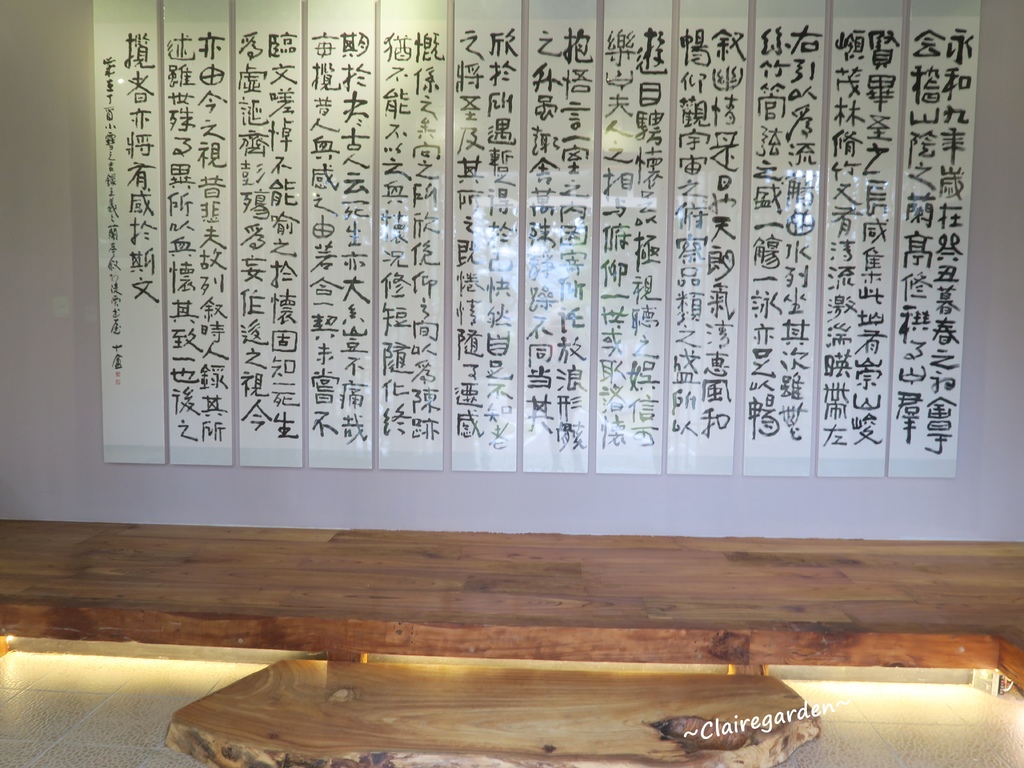 永和九年歲在癸丑暮春之初會于
會稽山陰之蘭亭修禊事也群
賢畢至少長咸集此地有崇山峻
嶺茂林脩竹又有清流激湍暎帶左
右引以為流觴曲水列坐其次雖無
絲竹管弦之盛一觴一詠亦足以暢
叙幽情是日也天朗氣清惠風和
暢仰觀宇宙之俯察品類之盛所以
遊目騁懷足以極視聽之娛信可
樂也夫人之相與俯仰一世或取諸懷
抱悟言一室之內因寄所託放浪形骸
之外雖趣舍萬殊靜躁不同當其
欣於所遇暫得於己快然自足不知老
之將至及其所之既惓情隨事遷感
慨係之矣向之所欣俛仰之間以為陳跡
猶不能不以之興懷況修短隨化終
期於盡古人云死生亦大矣豈不痛哉
每攬昔人興感之由若合一契未嘗不
臨文嗟悼不能喻之於懷固知一死生
為虛誕齊彭殤為妄作後之視今
亦由今之視昔悲夫故列叙時人錄其所
述雖世殊事異所以興懷其致一也後之
攬者亦將有感於斯文
~Clairegarden~